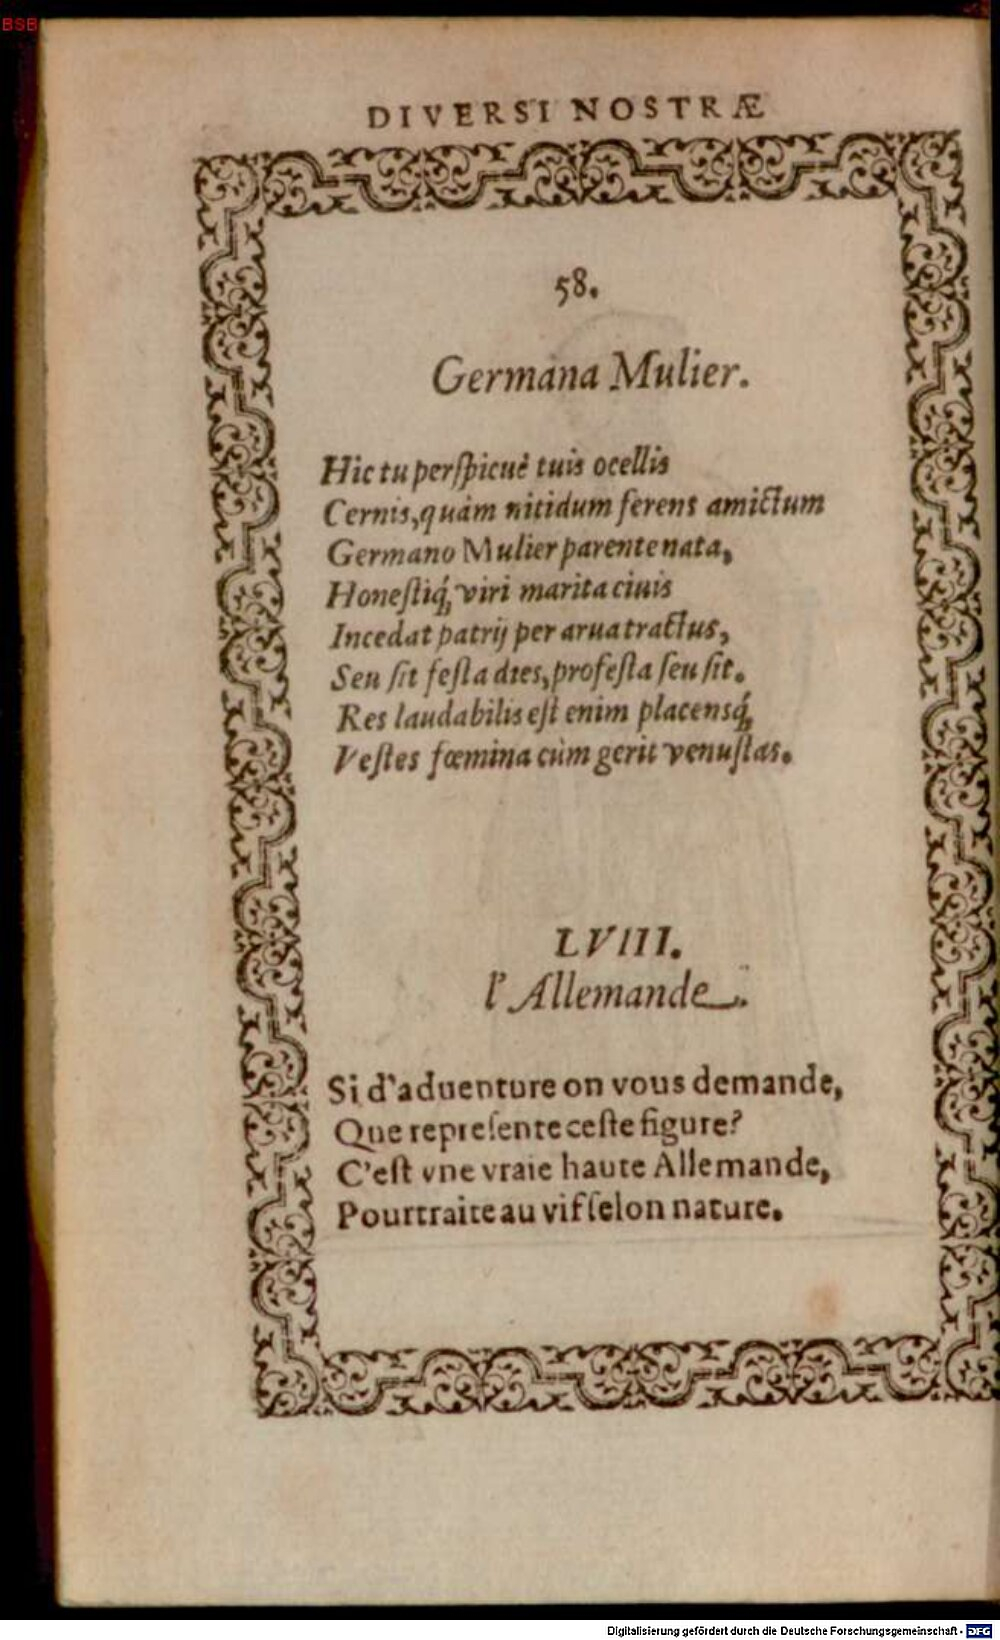 BSB
DIVERSI NOSTRÆ
58.
Germana Mulier.
Hic tu perſpicuè tuis ocellis
Cernis, quàm nitidum ferens amictum
Germano Mulier parente nata,
Honeſtiq́; viri marita ciuis
Incedat patrij per arua tractus,
Seu ſit feſta dies, profeſta ſeu ſit.
Res laudabilis eſt enim placensq́;
Veſtes fœmina cùm gerit venuſtas.
LVIII.
l'Allemande.
Si d'aduenture on vous demande,
Que repreſente ceſte figure?
C'eſt vne vraie haute Allemande,
Pourtraite au vif ſelon nature.
Digitalisierung gefördert durch die Deutsche Forschungsgemeinschaft - DFG